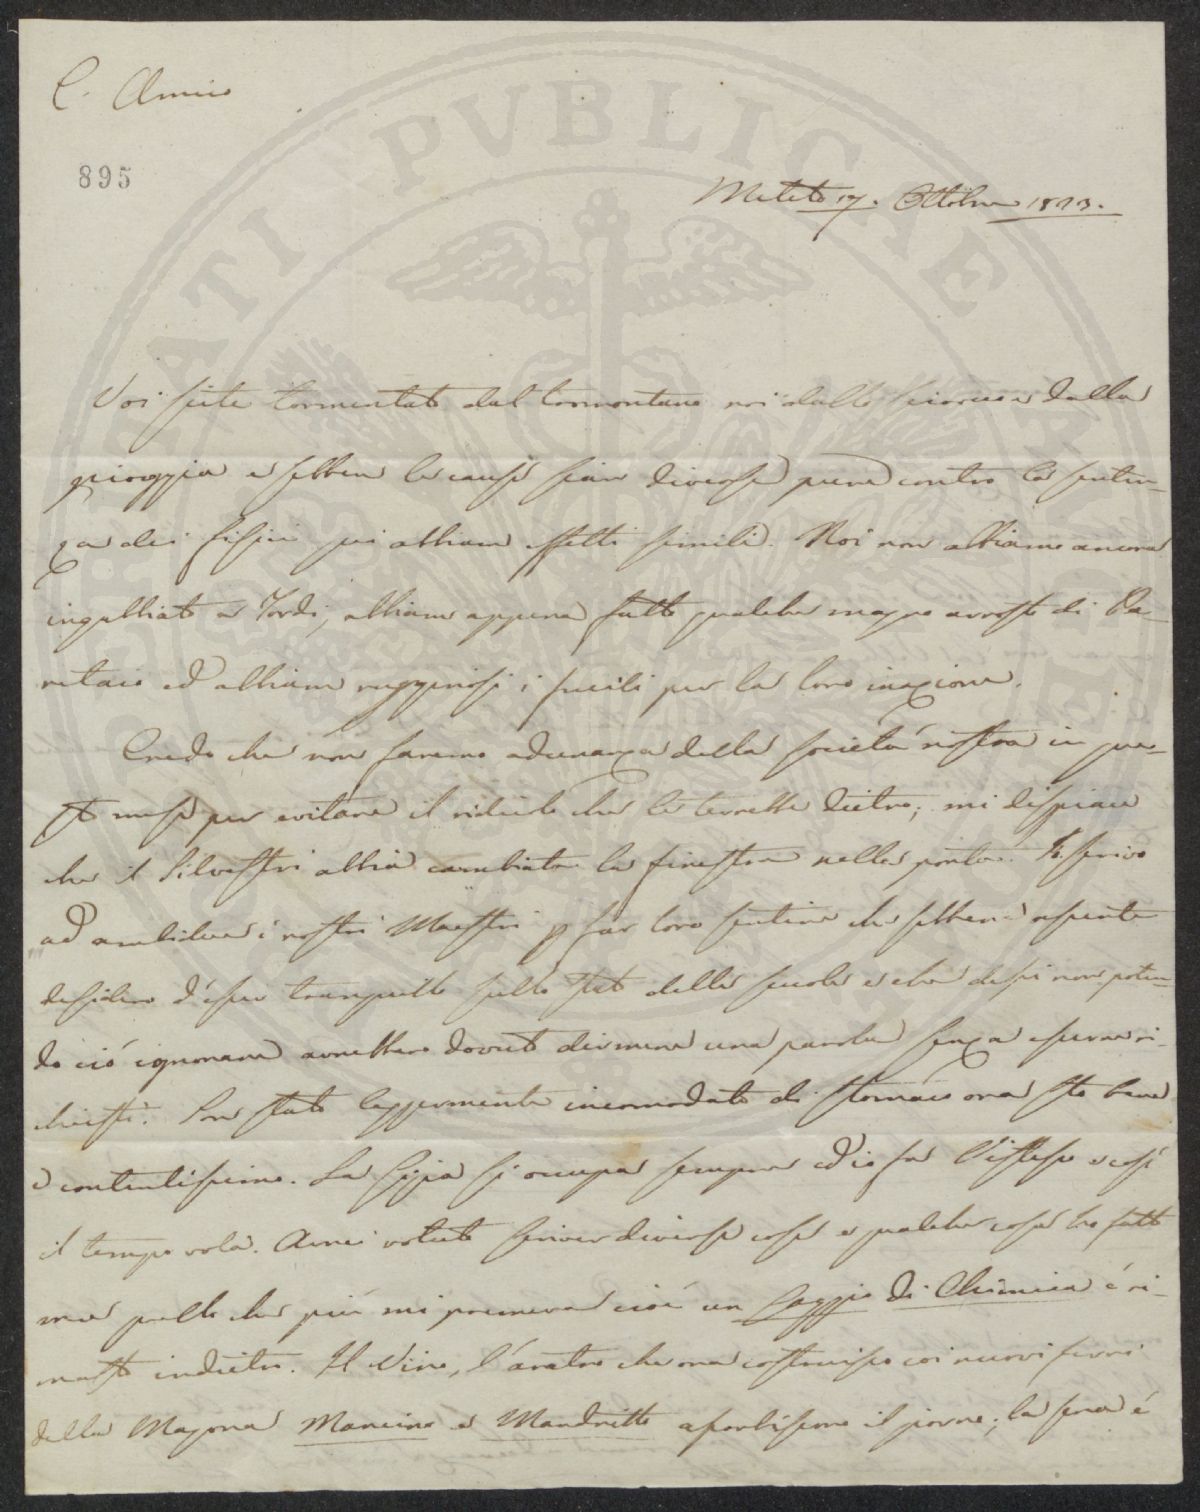 C. Amico
895
Meleto 17. Ottobre 1823.
Voi siete tormentato dal tramontano noi dallo Scirocco e dalla
pioggia e sebben le cause sian diverse pure contro la senten-
za dei fisici qui abbiam effetti simili. Noi non abbiamo ancora
ingabbiato a Tordi, abbiam appena fatto qualche magro arrosto di Pa-
retaio ed abbiam rugginosi i fucili per la loro inazione.
Credo che non faremo adunanza della società nostra in que-
sto mese per evitare il ridicolo che le terrebbe dietro; mi dispiace
che il Silvestri abbia cambiata la finestra nella porta. Io scrivo
ad ambidue i nostri Maestri p far loro sentire che sebbene assente
desidero d'esser tranquillo sullo stato della scuola e che dessi non poten-
do ciò ignorare avrebbero dovuto dirmene una parola senza esserne ri-
chiesti. Son stato leggermente incomodato di stomaco ora sto bene
e contentissimo. La Gigia si occupa sempre ed io fo l'istesso e così
il tempo vola. Avrei voluto scriver diverse cose e qualche cosa ho fatto
ma quello che più mi premeva cioè un Saggio di Chimica è ri-
masto indietro. Il Vino, l'aratro che ora costruisco coi nuovi ferri
della Magona Mancino e Mandritto assorbiscono il giorno; la sera è